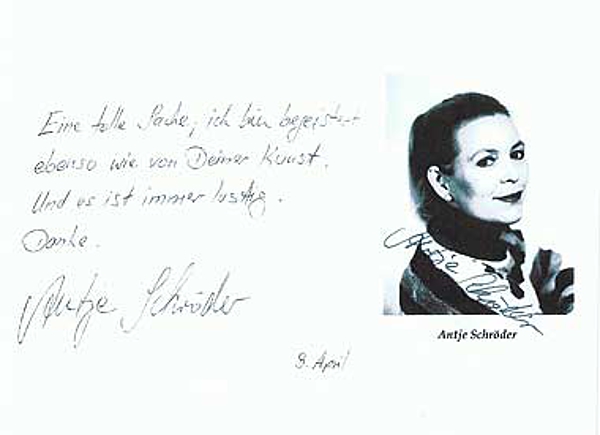 Eine tolle Sache, ich bin begeistert
ebenso wie von Deiner Kunst.
Und es ist immer lustig.
Danke.
Antje Schröder
Antje Schröder
Antje Schröder
9. April